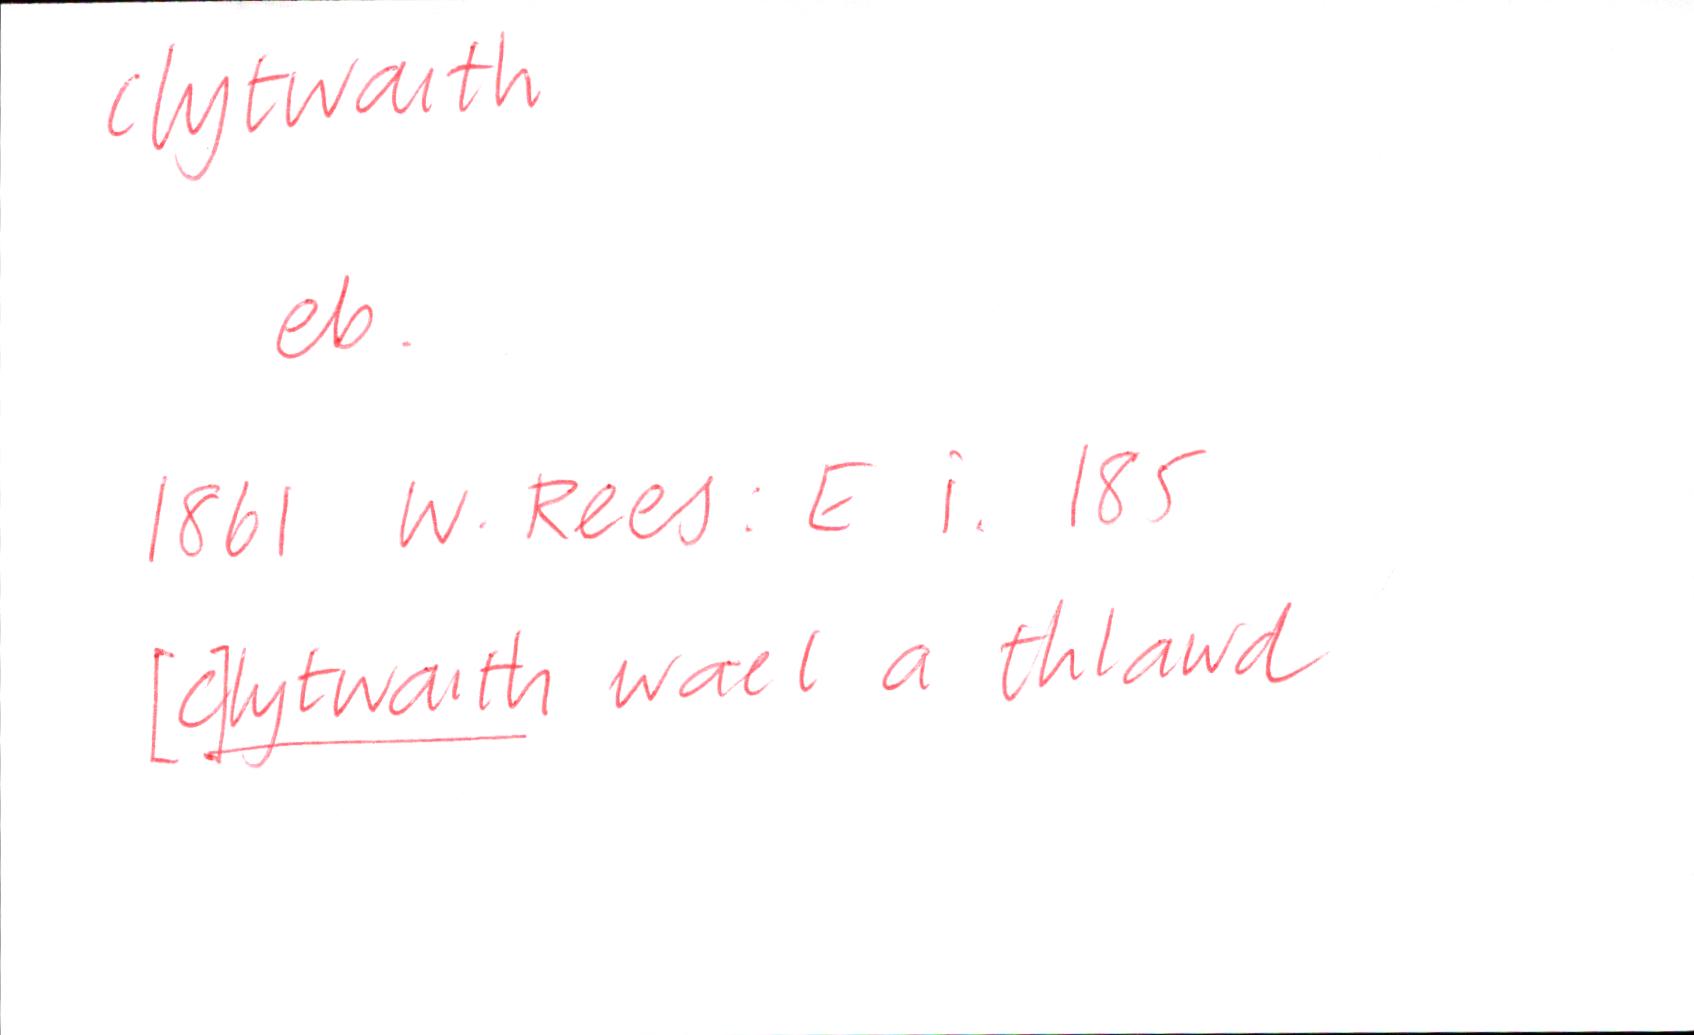 clytwaith
eb.
1861 W. Rees: E i. 185
[c]lytwaith wael a thlawd